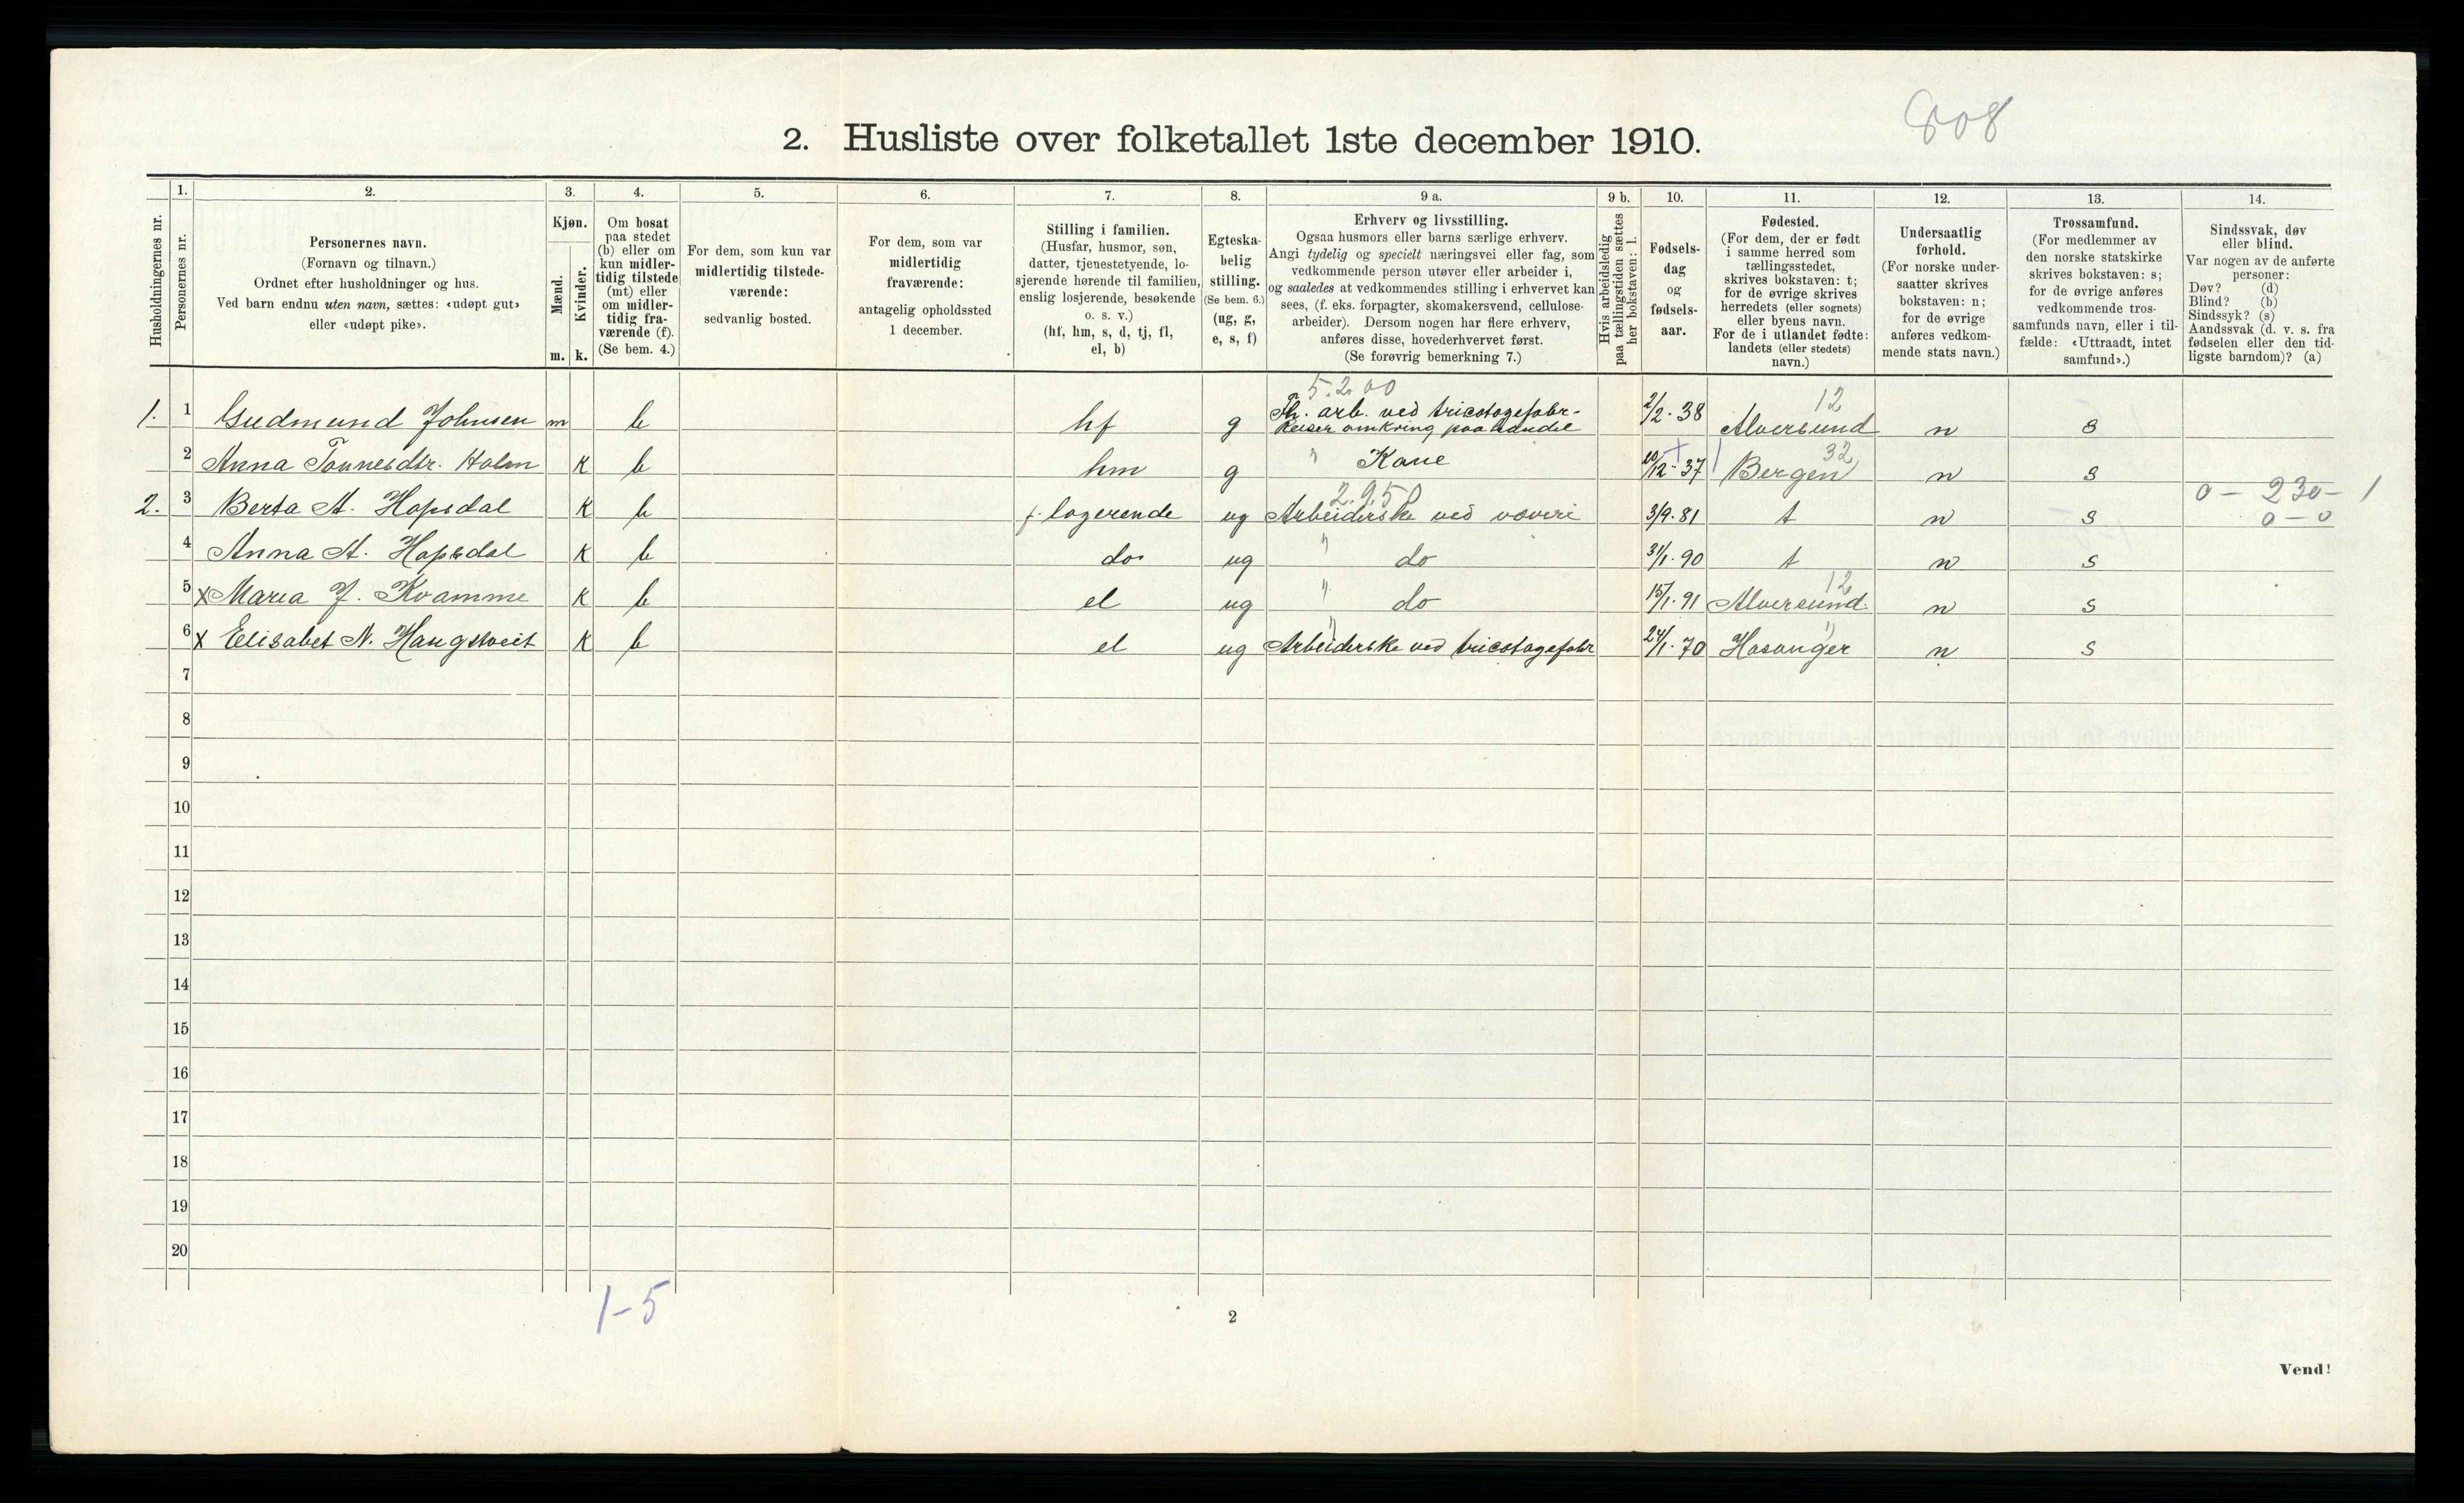 808
2. Husliste over folketallet 1ste december 1910.
Husholdningernes nr.
1.
Personernes nr.
2.
Personernes navn.
(Fornavn og tilnavn.)
Ordnet efter husholdninger og hus.
Ved barn endnu uten navn, sættes: «udøpt gut»
eller «udøpt pike».
3.
Kjøn.
Mænd.
Kvinder.
m. k.
4.
Om bosat
paa stedet
(b) eller om
kun midler-
tidig tilstede
(mt) eller
om midler-
tidig fra-
værende (f).
(Se bem. 4.)
5.
For dem, som kun var
midlertidig tilstede-
værende:
sedvanlig bosted.
6.
For dem, som var
midlertidig
fraværende:
antagelig opholdssted
1 december.
7.
Stilling i familien.
(Husfar, husmor, søn,
datter, tjenestetyende, lo-
sjerende hørende til familien,
enslig losjerende, besøkende
o. s. v.)
(hf, hm, s, d, tj, fl,
el, b)
8.
Egteska-
belig
stilling.
(Se bem. 6.)
(ug, g,
e, s, f)
9 a.
Erhverv og livsstilling.
Ogsaa husmors eller barns særlige erhverv.
Angi tydelig og specielt næringsvei eller fag, som
vedkommende person utøver eller arbeider i,
og saaledes at vedkommendes stilling i erhvervet kan
sees, (f. eks. forpagter, skomakersvend, cellulose-
arbeider). Dersom nogen har flere erhverv,
anføres disse, hovederhvervet først.
(Se forøvrig bemerkning 7.)
9 b.
Hvis arbeidsledig
paa tællingstiden sættes
her bokstaven: l.
10.
Fødsels-
dag
og
fødsels-
aar.
11.
Fødested.
(For dem, der er født
i samme herred som
tællingsstedet,
skrives bokstaven: t;
for de øvrige skrives
herredets (eller sognets)
eller byens navn.
For de i utlandet fødte:
landets (eller stedets)
navn.)
12.
Undersaatlig
forhold.
(For norske under-
saatter skrives
bokstaven: n;
for de øvrige
anføres vedkom-
mende stats navn.)
13.
Trossamfund.
(For medlemmer av
den norske statskirke
skrives bokstaven: s;
for de øvrige anføres
vedkommende tros-
samfunds navn, eller i til-
fælde: «Uttraadt, intet
samfund».)
14.
Sindssvak, døv
eller blind.
Var nogen av de anførte
personer:
Døv? (d)
Blind? (b)
Sindssyk? (s)
Aandssvak (d. v. s. fra
fødselen eller den tid-
ligste barndom)? (a)
5.2.00 12
1. 1 Gudmund Johnsen m b hf g Fh. arb. ved tricotagefabr- 2/2-38 Alversund n s
Reiser omkring paa handel
32
2 Anna Tonnesdtr. Holm K b hm g " Kone 20/12-37 Bergen n s
2.9.50 0 - 230 - 1
2. 3 Berta A. Hopsdal K b f. logerende ug Arbeiderske ved væveri 3/9-81 t n s 0-0
4 Anna A. Hopsdal K b do ug " do 31/1-90 t n s
12
5 x Maria J. Kvamme K b el ug " do 15/1-91 Alversund n s
6 x Elisabet N. Haugstveit K b el ug Arbeiderske ved tricotagefabr 24/1-70 Hosanger n s
7
8
9
10
11
12
13
14
15
16
17
18
19
20
1-5
2
Vend!